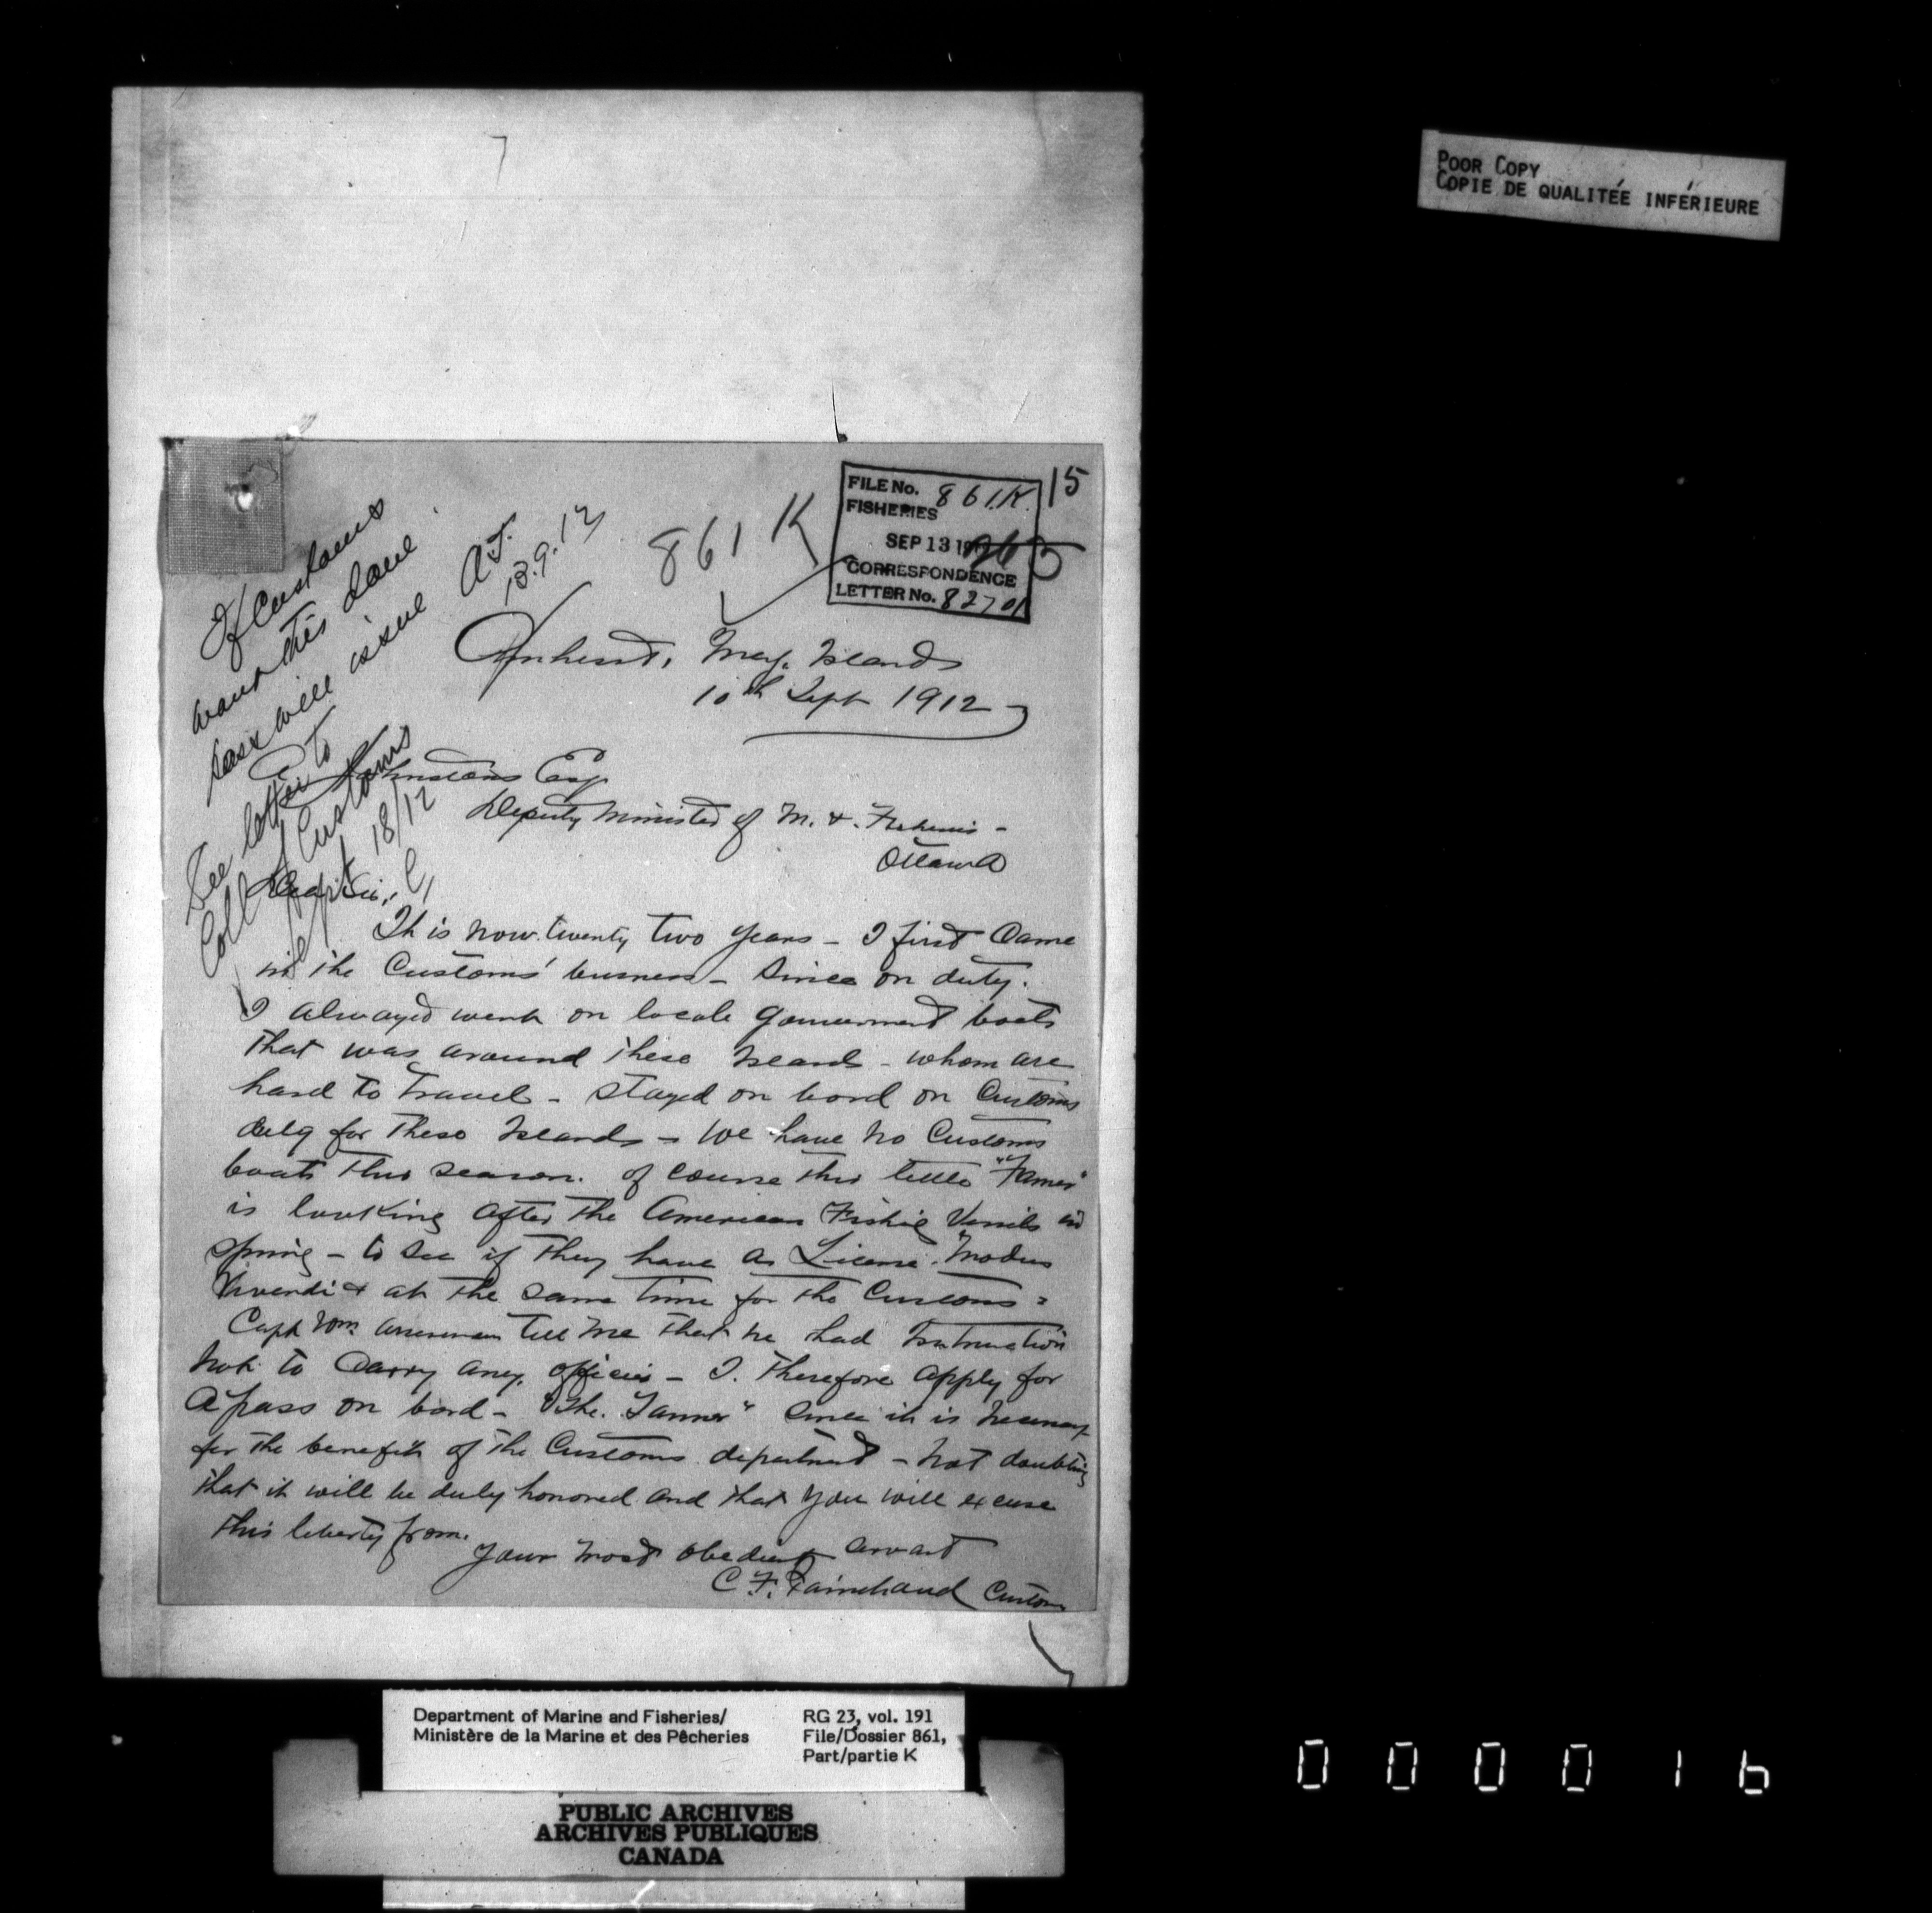 POOR COPY
COPIE DE QUALITÉE INFÉRIEURE
7
15
FILE No. 861.K.
FISHERIES
SEP 13
CORRESPONDENCE
LETTER No. 82701
861 K
If Customs
want this done
pass will issue A.J.
13.9.12
See letter to
Coll of Customs
Sept 18/12
Amherst, Mag. Islands
10th Sept 1912
A Johnston Esq
Deputy Minister of M. & Fisheries -
Ottawa
Dear Sir,
It is now twenty two years - I first came
in the Customs' business - Since on duty.
I always went on locale Gouverment boats
that was around these Islands - whom are
hard to travel - stayed on bord on Customs
duty for these Islands - We have no Customs
boats this season. of course this little
is looking after the American Fishing Vessels in
spring - to see if they have a License. "Modus
Vivendi & at the same time for the Customs -
Capt Wm. tell me that he had Instruction
not to carry any officers - I. therefore apply for
A pass on bord - "The. " since it is necessary
for the benefit of the Customs department - not doubting
that it will be duly honored and that you will excuse
this liberty from.
Your most obedient servant
C. F. Painchaud Customs
Department of Marine and Fisheries/
Ministère de la Marine et des Pêcheries
RG 23, vol. 191
File/Dossier 861,
Part/partie K
PUBLIC ARCHIVES
ARCHIVES PUBLIQUES
CANADA
000016